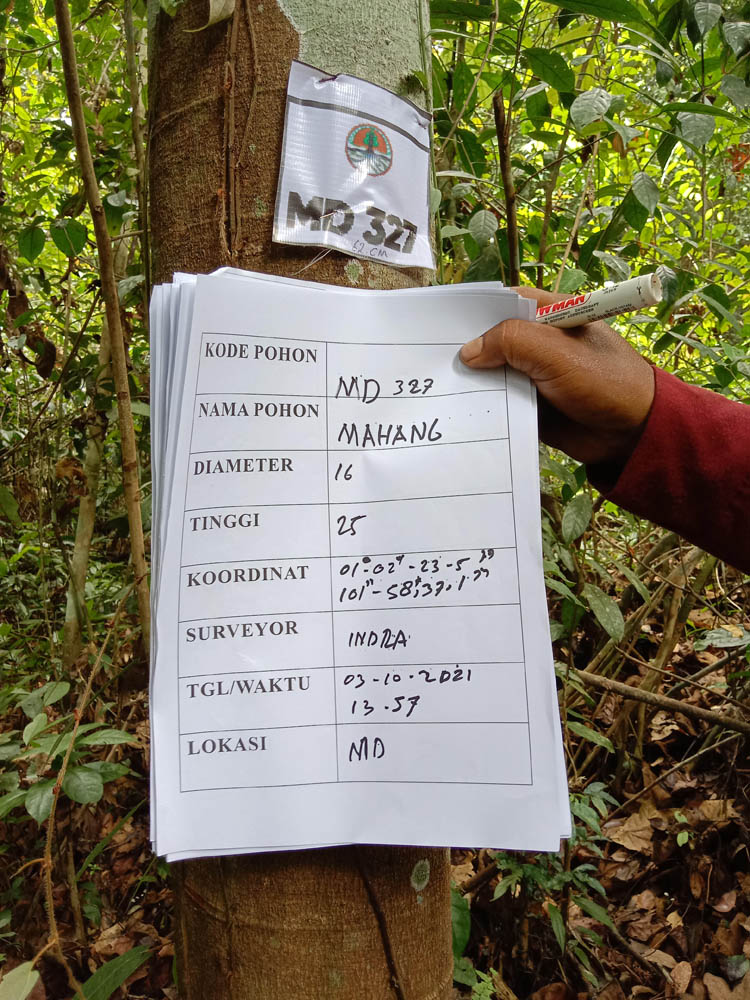 MD 327
62 CM
WMAN
KODE POHON
MD 327
NAMA POHON
MAHANG
DIAMETER
16
TINGGI
25
KOORDINAT
01°-02"-23-5"
101"-58,37.1"
SURVEYOR
INDRA
TGL/WAKTU
03-10-2021
13-57
LOKASI
MD